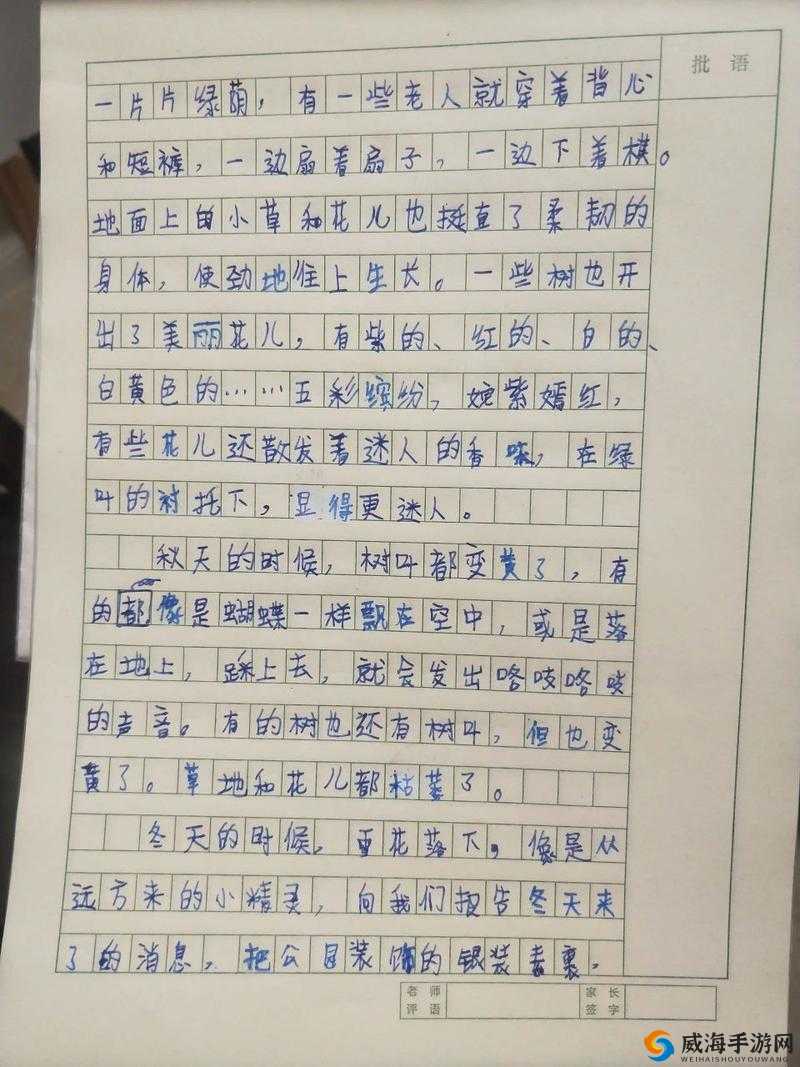 批语
一片片绿荫，有一些老人就穿着背心
和短裤，一边扇着扇子，一边下着棋。
地面上的小草和花儿也挺直了柔韧的
身体，使劲地往上生长。一些树也开
出了美丽花儿，有紫的、红的、白的、
白黄色的……五彩缤纷，婉紫嫣红，
有些花儿还散发着迷人的香味，在绿
叶的衬托下，显得更迷人。
秋天的时候，树叶都变黄了，有
的都像是蝴蝶一样飘在空中，或是落
在地上，踩上去，就会发出咯吱咯吱
的声音。有的树也还有树叶，但也变
黄了。草地和花儿都枯萎了。
冬天的时候，雪花落下，像是从
远方来的小精灵，向我们报告冬天来
了的消息，把公园装饰的银装素裹，
老师评语
家长签字
威海手游网
WEIHAISHOUYOUWANG